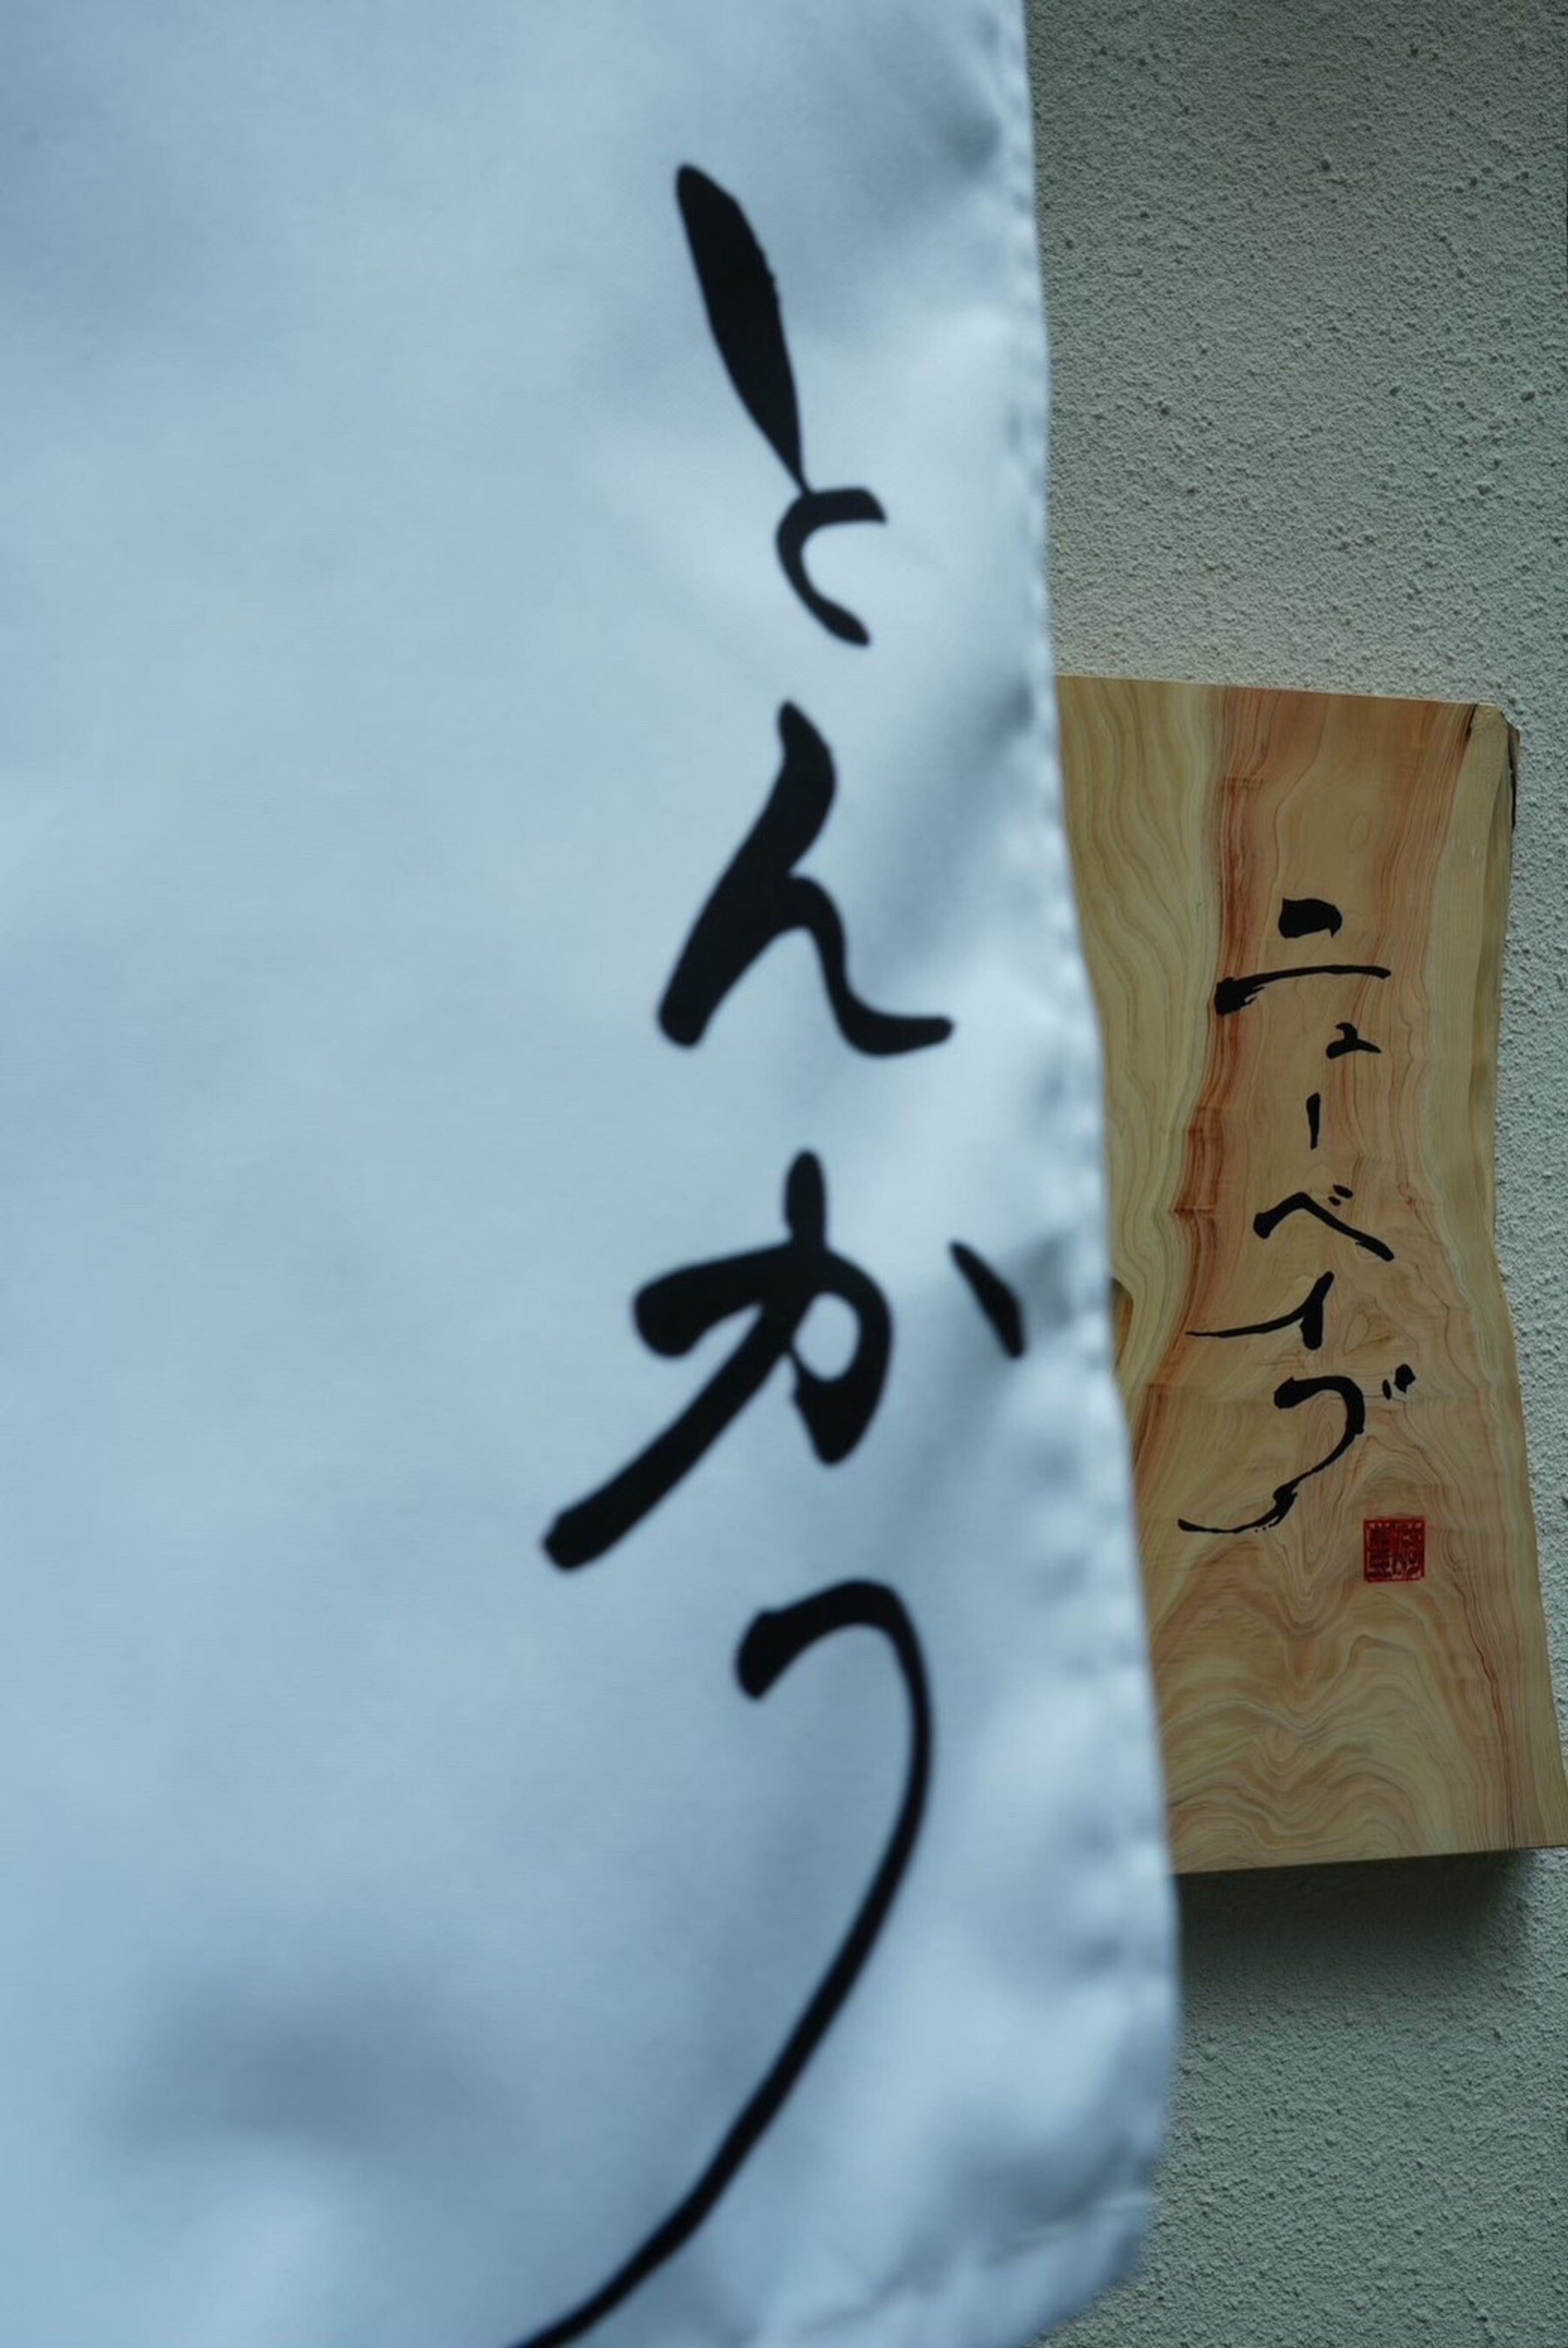 とんかつ
ニューベイブ